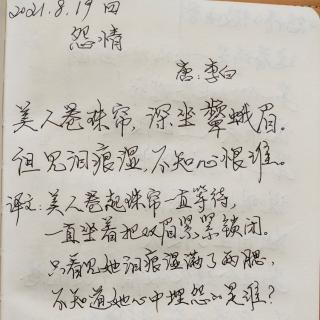 2021.8.19 四
怨情
唐:李白
美人卷珠帘,深坐颦蛾眉。
但见泪痕湿,不知心恨谁。
译文:美人卷起珠帘一直等待,
一直坐着把双眉紧紧锁闭。
只看见她泪痕湿满了两腮,
不知道她心中埋怨的是谁?